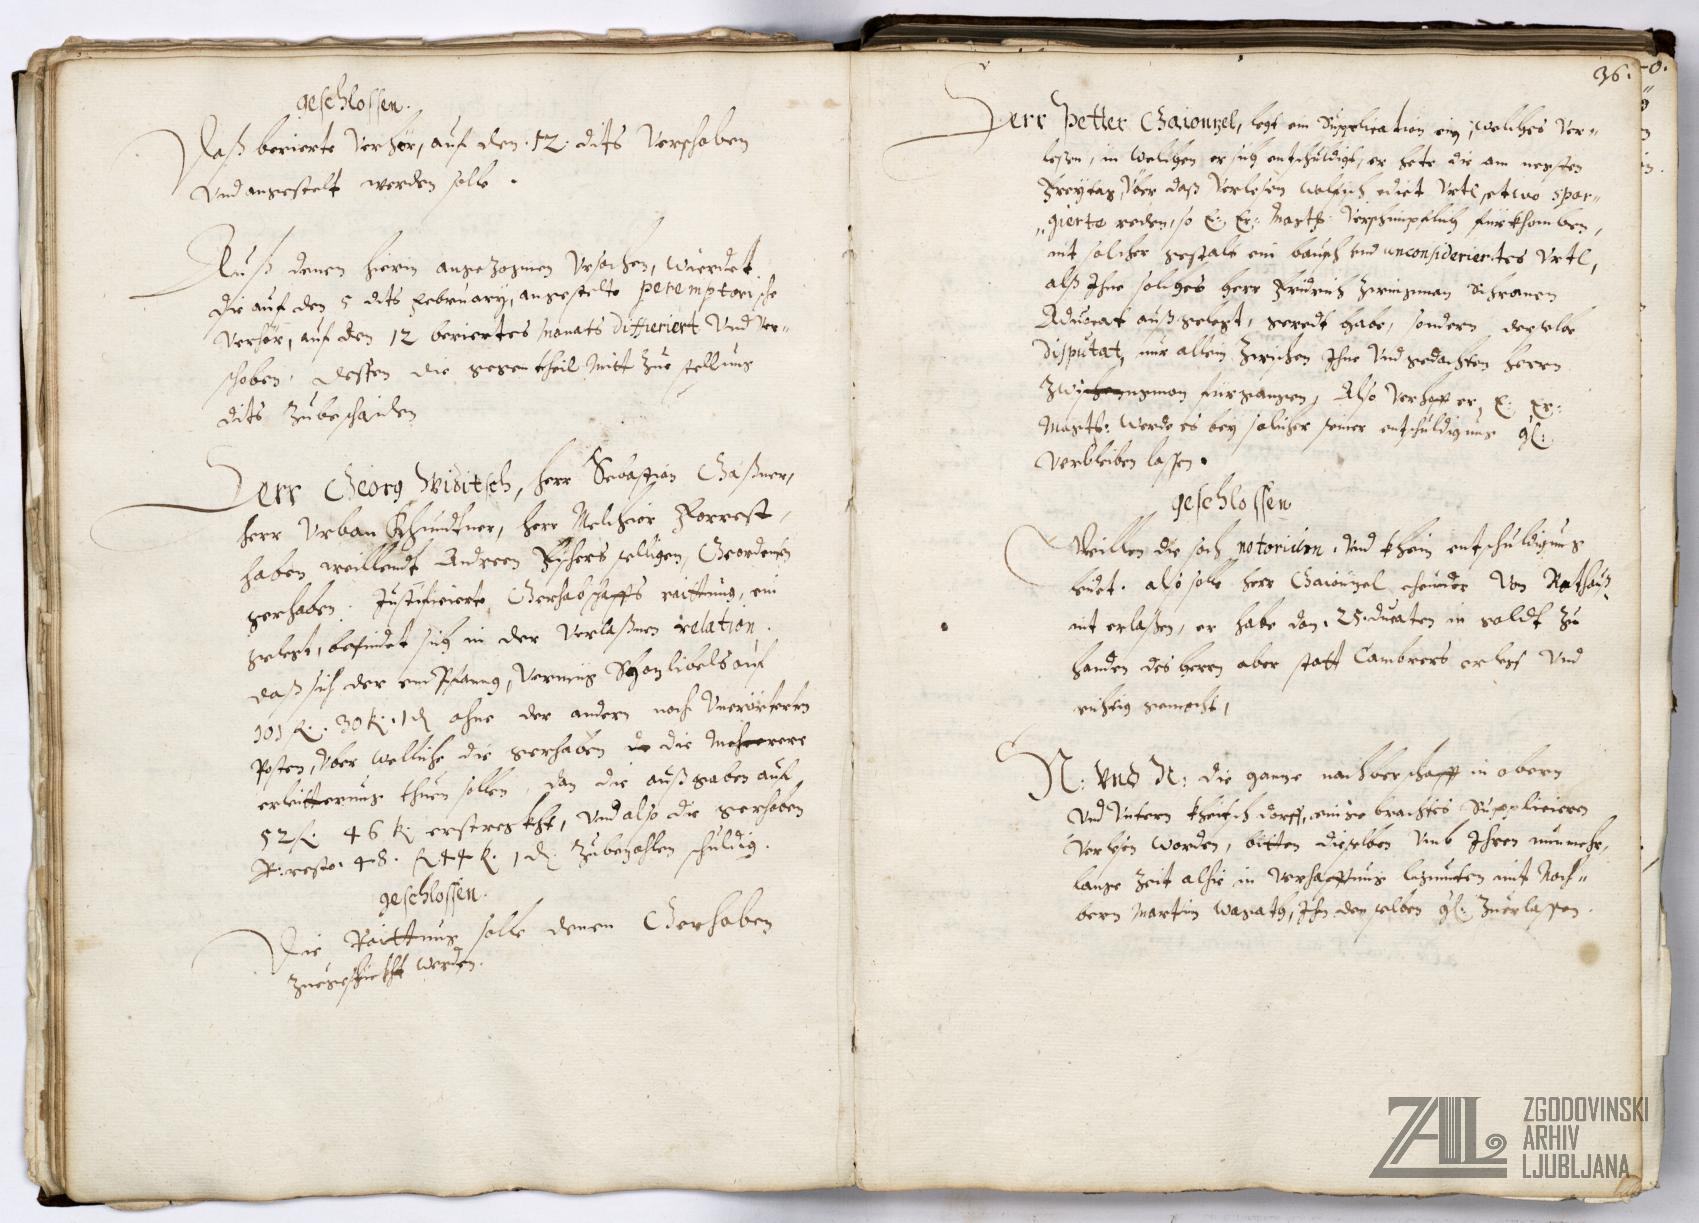 geschlossen.
Daß berierte Verhör, auf den .12. dits Verschoben
Vnd angestelt werden solle.
Auß denen hierin angezognen Vrsachen, wierdet
die auf den 5 dits february, angestelte peremptorische
Verhör, auf den 12 beriertes Monats differiert Vnd Ver-
schoben. dessen die gegentheil Mitt Zue stellung
dits Zubeschaiden
Herr Georg Viditsch, herr Sebastian Gaßner,
herr Vrban herr Melchior Forrest,
haben weillendt Andreen Fischers selligen, Geordenten
gerhaben. Justificierte Gerhabschaffts raittung, ein
gelegt, befindet sich in der Verlaßnen relation,
daß sich der empfanng, Vermüg auf
101 f. 30 k. 1 d ohne der andern noch Vnerörterten
Posten, Vber welliche die gerhaben die Mehrere
erleitterung thuen sollen, dan die außgaben auf
52 f. 46 k. erstreckht, Vnd also die gerhaben
P: resto. 48. f 44 k. 1 d. Zubezahlen schuldig.
geschlossen.
Die Raittung solle denen Gerhaben
Zuegestelt werden.
36.
Herr Petter legt ein Supplication ein, welches Ver-
lesen, in welichen er sich entschuldigt, er hete die am negsten
Freytag, Vber daß Verlesen Vrtl, etwo spar-
gierte reden, so E: Er: Magth: Verschimpflich fürkhomben,
nit solcher gestalt ein Vnd unconsideriertes Vrtl,
alß Ihne solches herr Fridrich
Aduocat außgelegt, geredt habe, sondern derselbe
Disputat, nur allein Zwischen Ihne Vnd gedachten herrn
fürgangen, Also Verhoff er, E: Er:
Magth: werde es bey solicher seiner entschuldigung gl:
Verbleiben lassen.
geschlossen
Weillen die sach notorium. Vnd khein entschuldigung
leidt. also solle herr ehender Von Rathauß
nit erlaßen, er habe dan. 25. ducaten in goldt Zu
handen des herrn ober statt Cambrers erlegt Vnd
richtig gemacht,
N: Vnd N: die gannze nachberschafft in obern
Vnd Vntern dorff, eingebrachtes Supplicieren
Verlesen worden, bitten dieselben Vmb Ihren nunmehr,
lange Zeit alhie in Verhafftung ligunten mit Nach-
bern Martin Ihn denselben gl: Zuerlassen.
ZGODOVINSKI
ARHIV
LJUBLJANA